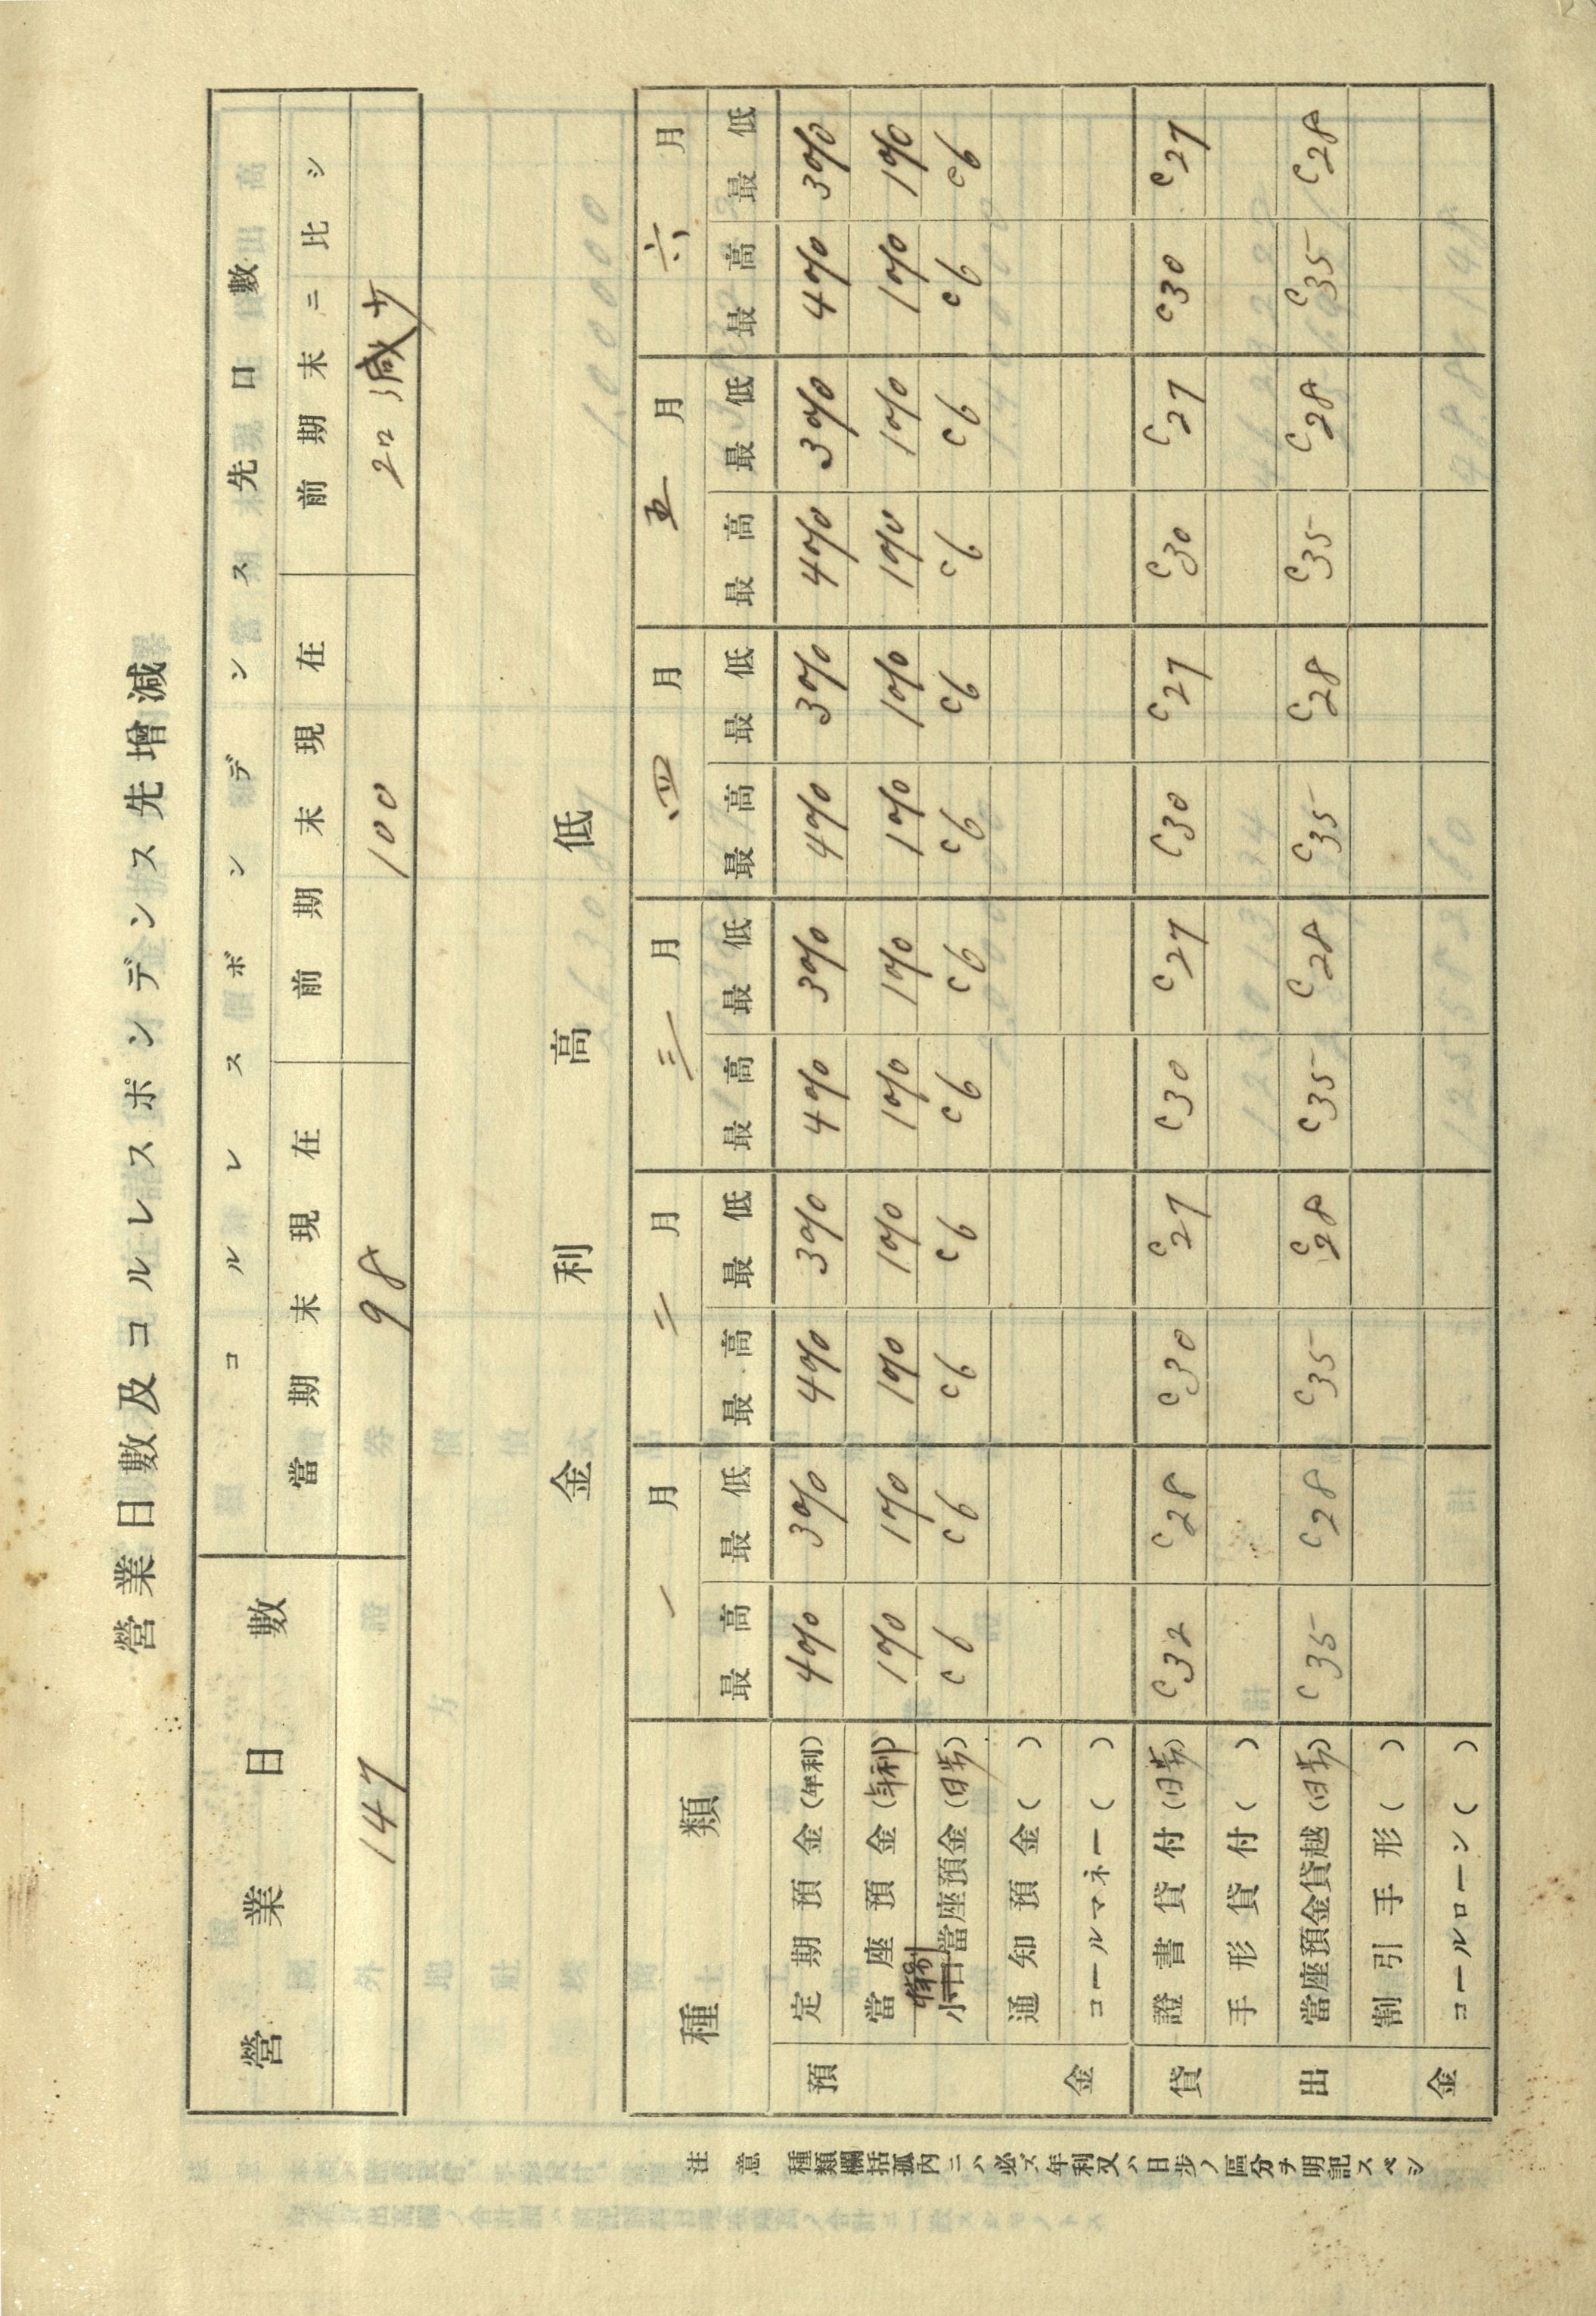 營業日數及コルレスポンデンス先增減
營業日數 コルレスポンデンス先口數
當期末現在 前期末現在 前期末ニ比シ
147 98 100 2口減少
金利高低
種類 一月 二月 三月 四月 五月 六月
最高 最低 最高 最低 最高 最低 最高 最低 最高 最低 最高 最低
預金
定期預金(年利) 4% 3% 4% 3% 4% 3% 4% 3% 4% 3% 4% 3%
當座預金(年利) 1% 1% 1% 1% 1% 1% 1% 1% 1% 1% 1% 1%
特別
小口當座預金(日歩) c6 c6 c6 c6 c6 c6 c6 c6 c6 c6 c6 c6
通知預金( )
コールマネー( )
貸出金
證書貸付(日歩) c32 c28 c30 c27 c30 c27 c30 c27 c30 c27 c30 c27
手形貸付( )
當座預金貸越(日歩) c35 c28 c35 c28 c35 c28 c35 c28 c35 c28 c35 c28
割引手形( )
コールローン( )
注意 種類欄括弧內ニハ必ズ年利又ハ日歩ノ區分ヲ明記スベシ